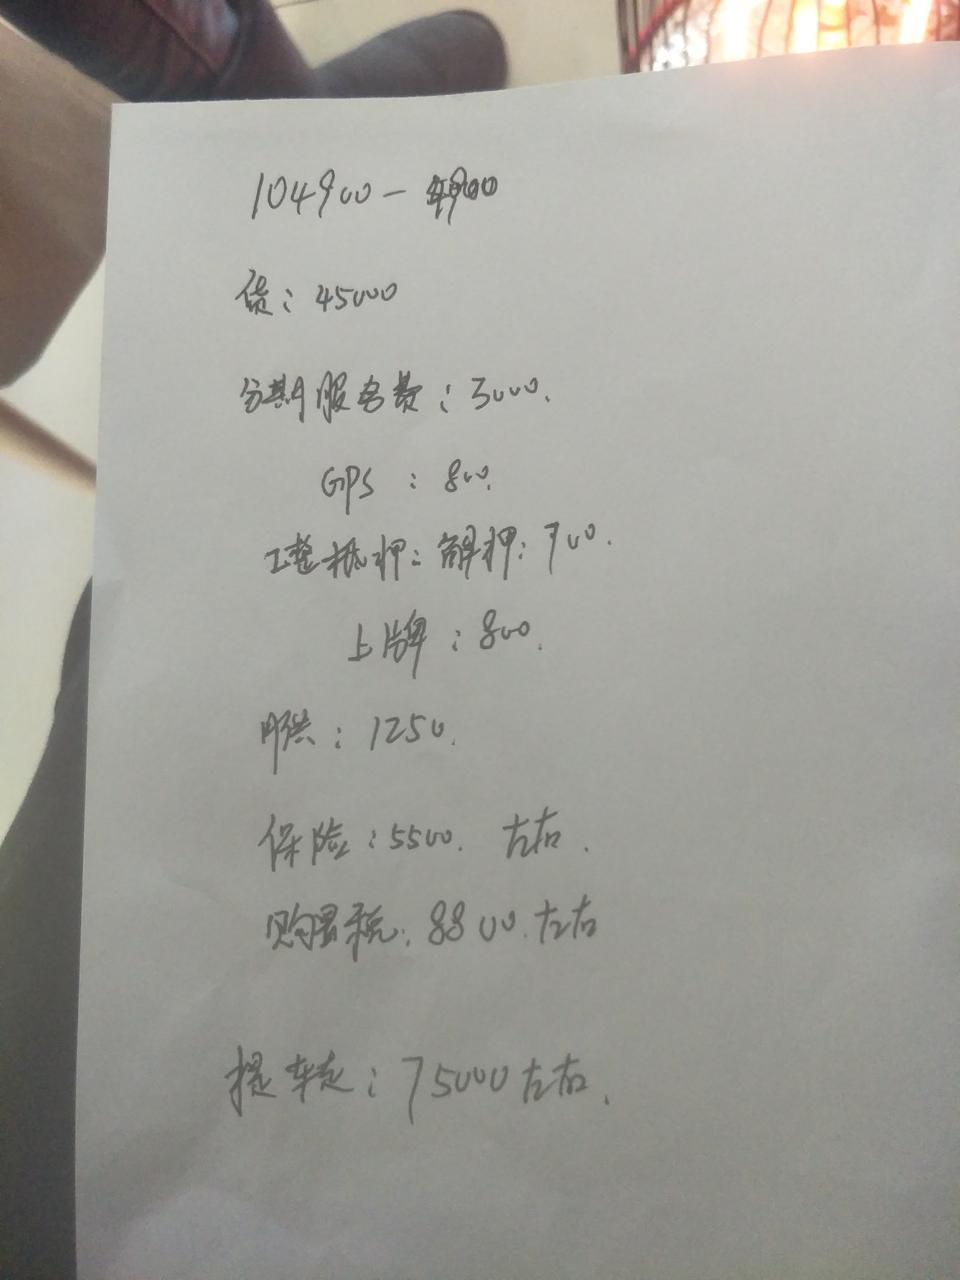 104900-4900
贷：45000
分期服务费：3000.
GPS：800.
抵押：解押：700.
上牌：800.
月供：1250.
保险：5500.左右.
购置税：8800.左右
提车走：75000左右.